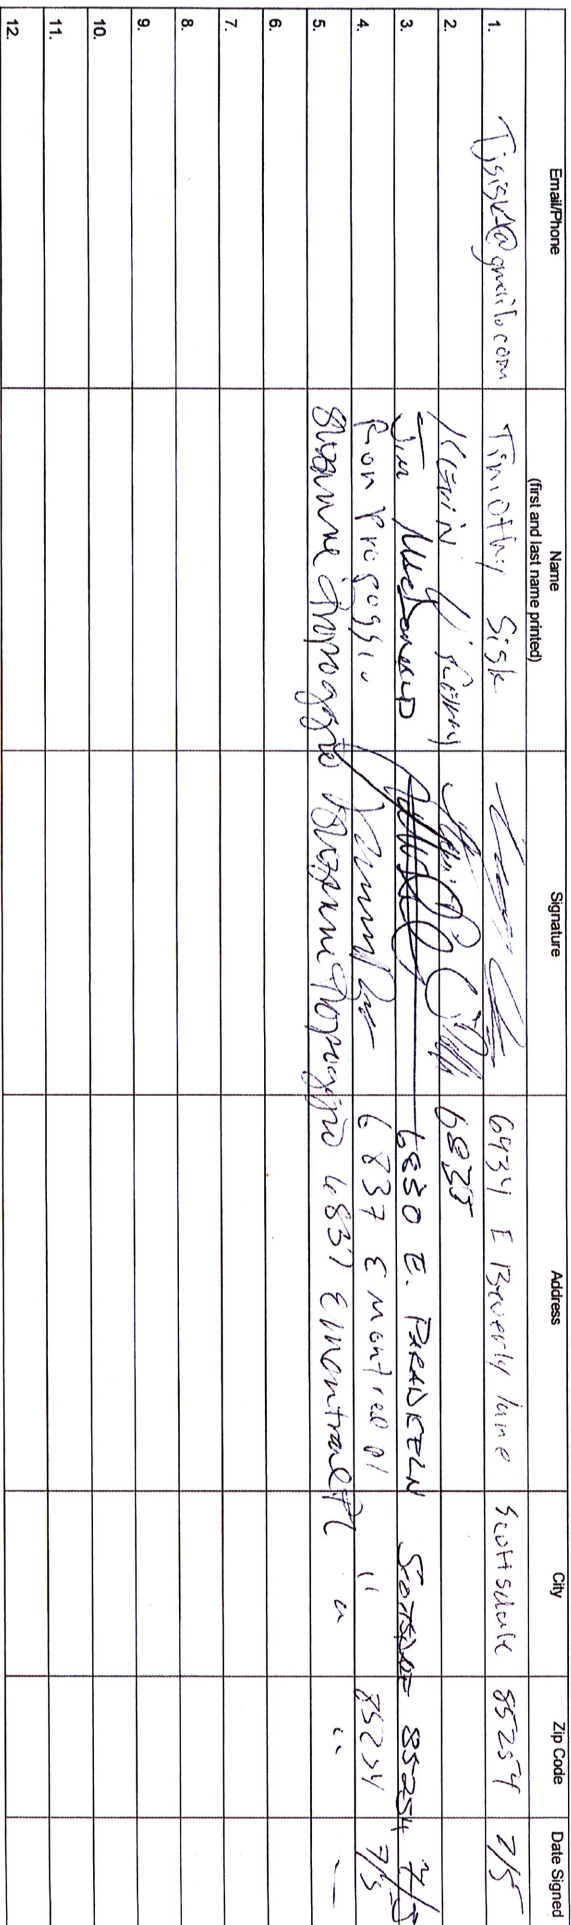 Email/Phone Name (first and last name printed) Signature Address City Zip Code Date Signed
1. Timothy Sisk 6434 E Beverly lane Scottsdale 85254 7/5
2. Kevin 6835
3. Jim MacDonald 6830 E. Scottsdale 85254 7/5
4. Ron Propoggio 6837 E Montreal Pl " 85254 7/5
5. Suzanne Propoggio Suzanne Propoggio 6837 E Montreal Pl " "
6.
7.
8.
9.
10.
11.
12.